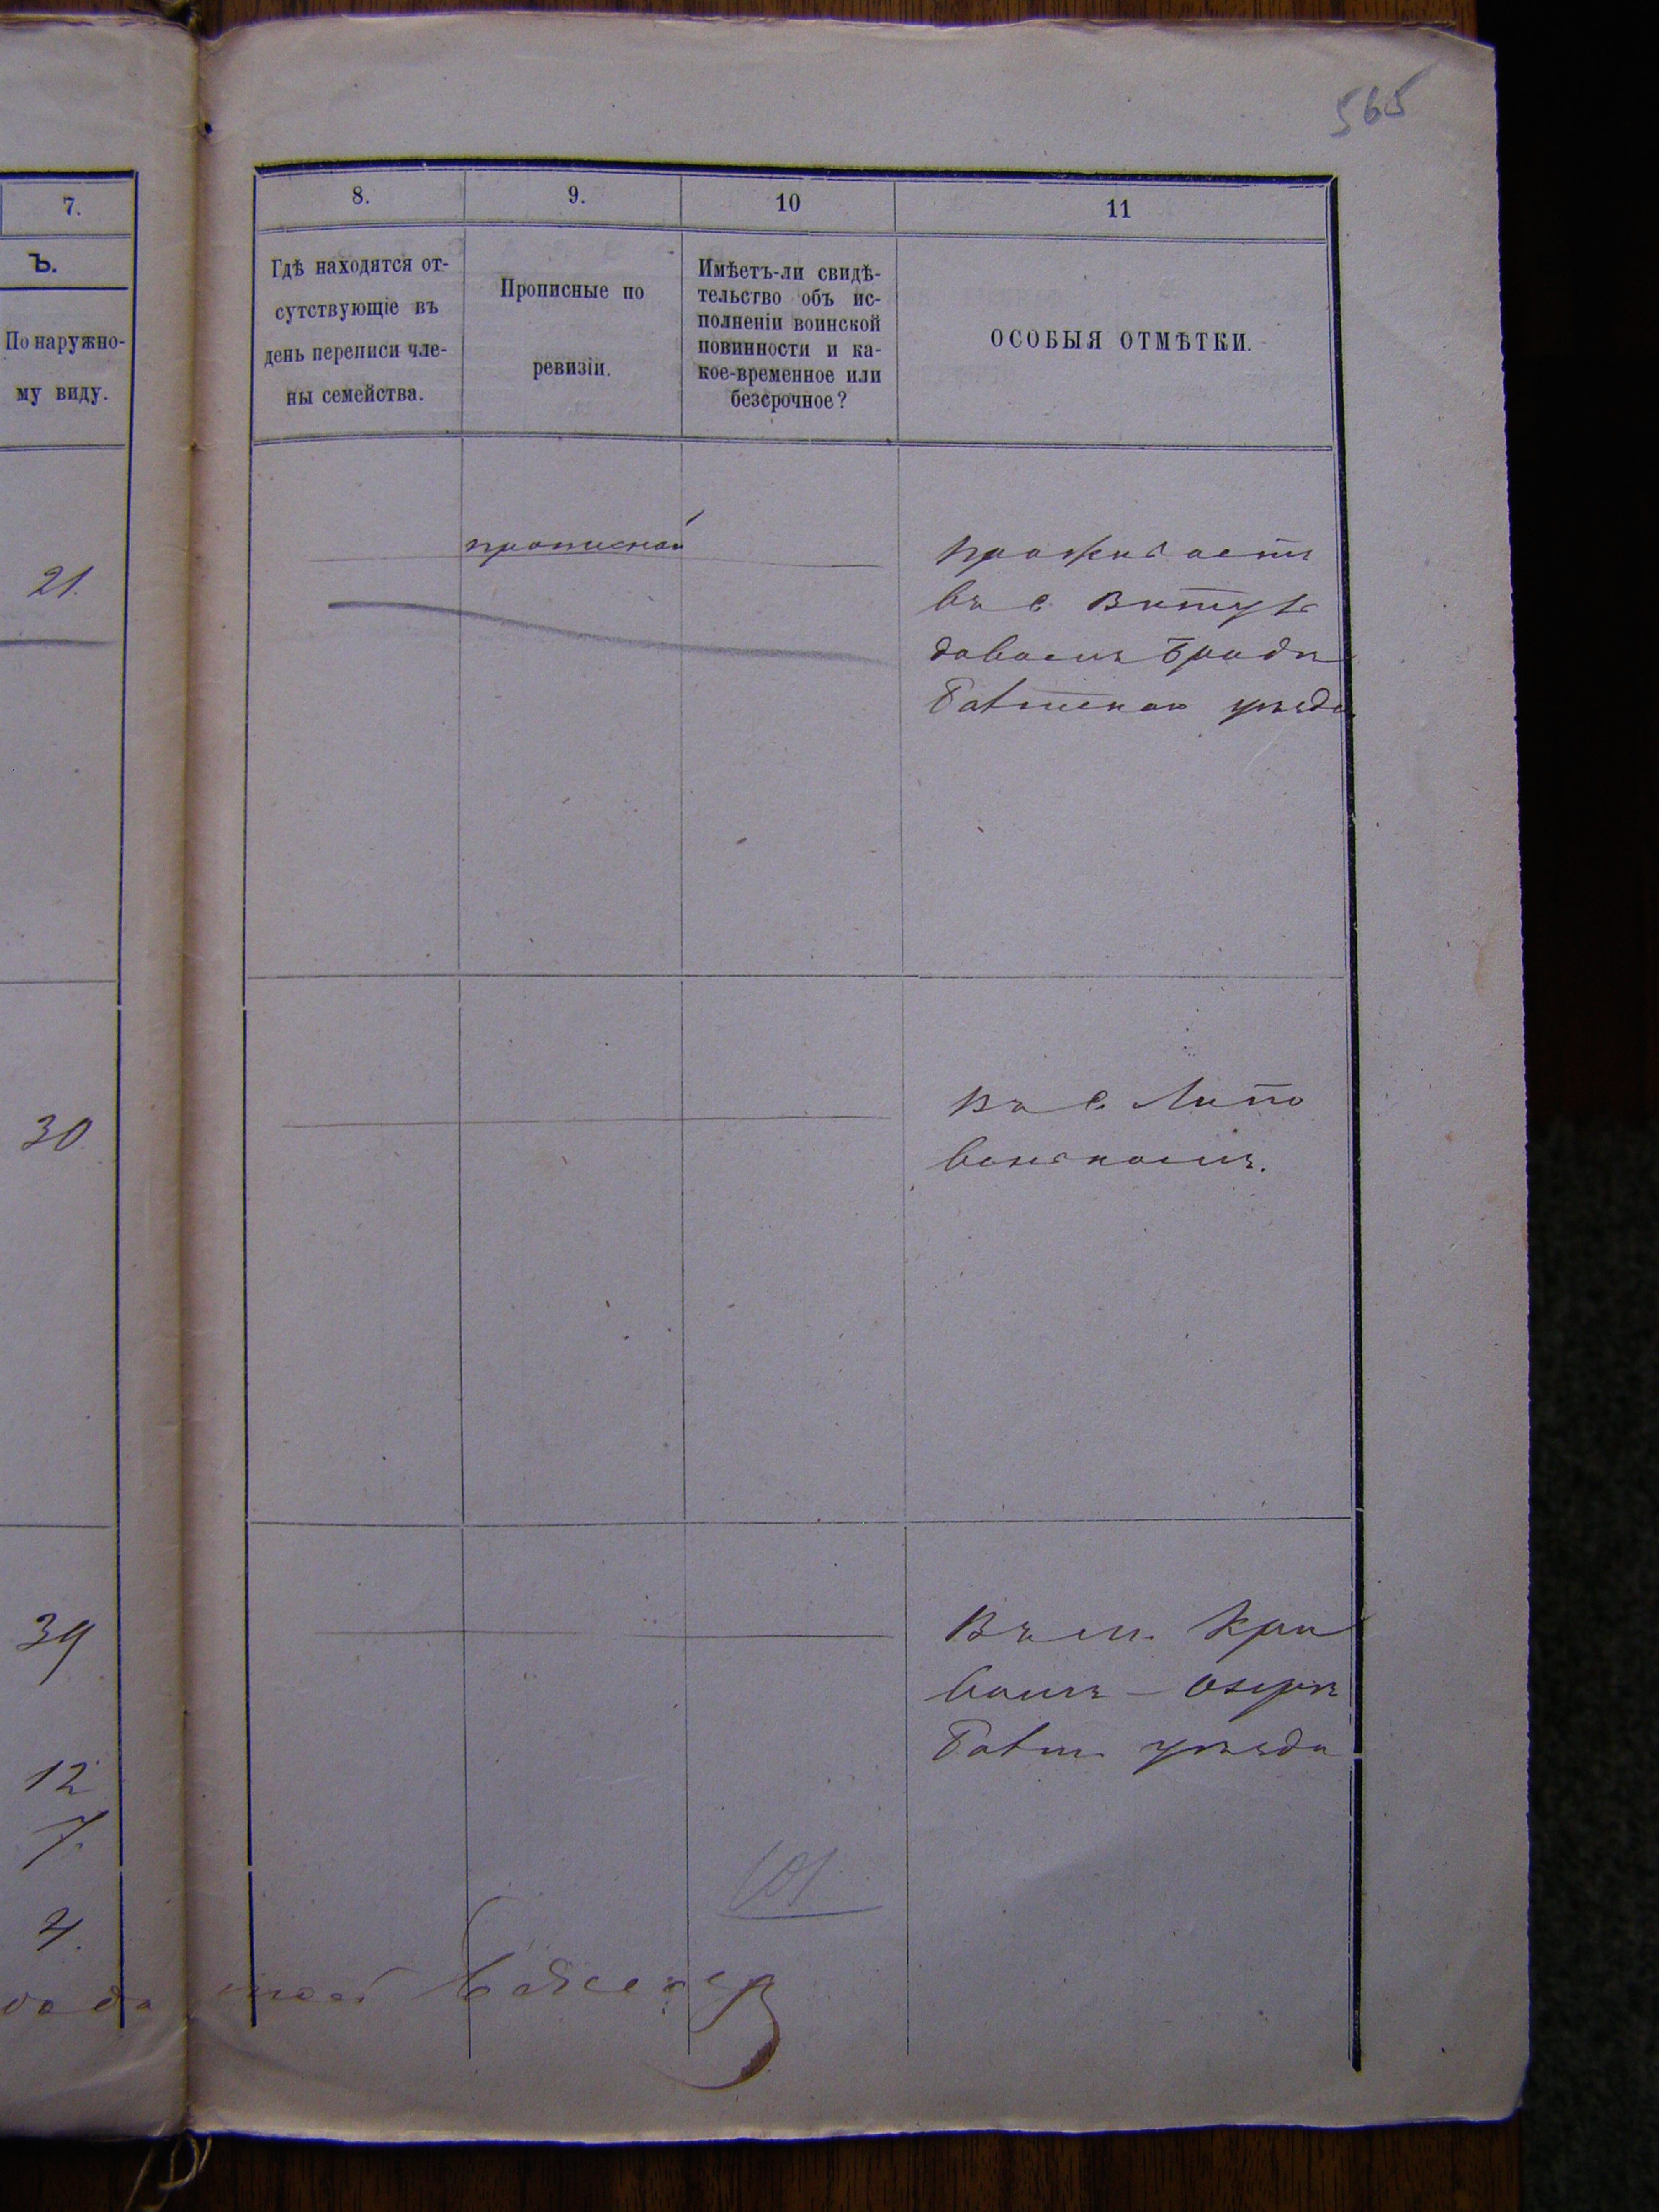 565
7.
8.
9.
10
11
Ъ.
По наружно-
му виду.
Гдѣ находятся от-
сутствующіе въ
день переписи чле-
ны семейства.
Прописные по
ревизіи.
Имѣетъ-ли свидѣ-
тельство объ ис-
полненіи воинской
повинности и ка-
кое-временное или
безсрочное?
ОСОБЫЯ ОТМѢТКИ.
21.
прописной
проживаетъ
въ с.
Бродѣ
Балтскаго уѣзда
30
Въ с. Липо
венькомъ.
39
12
7.
4.
Въ м. Кри
вомъ-Озерѣ
Балт. уѣзда
101